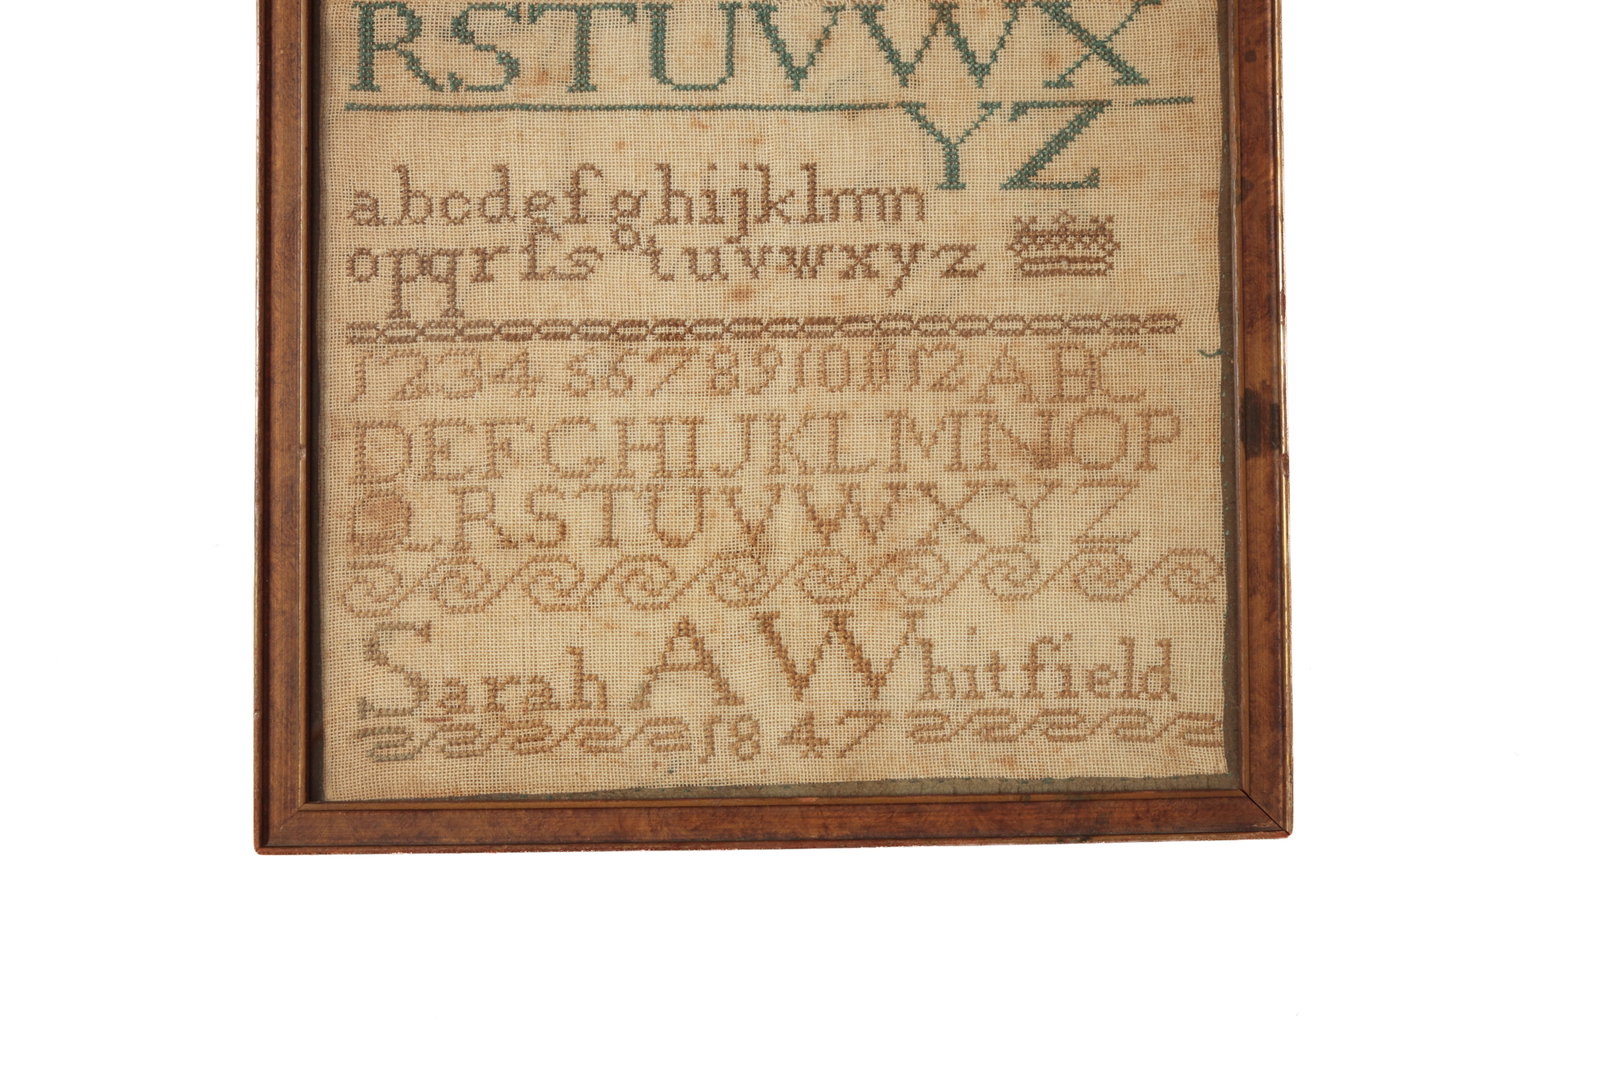 RSTUVWX
YZ
abcdefghijklmn
opqrſstuvwxyz
1 2 3 4 5 6 7 8 9 10 11 12 A B C
DEFGHIJKLMNOP
QRSTUVWXYZ
Sarah A Whitfield
1847